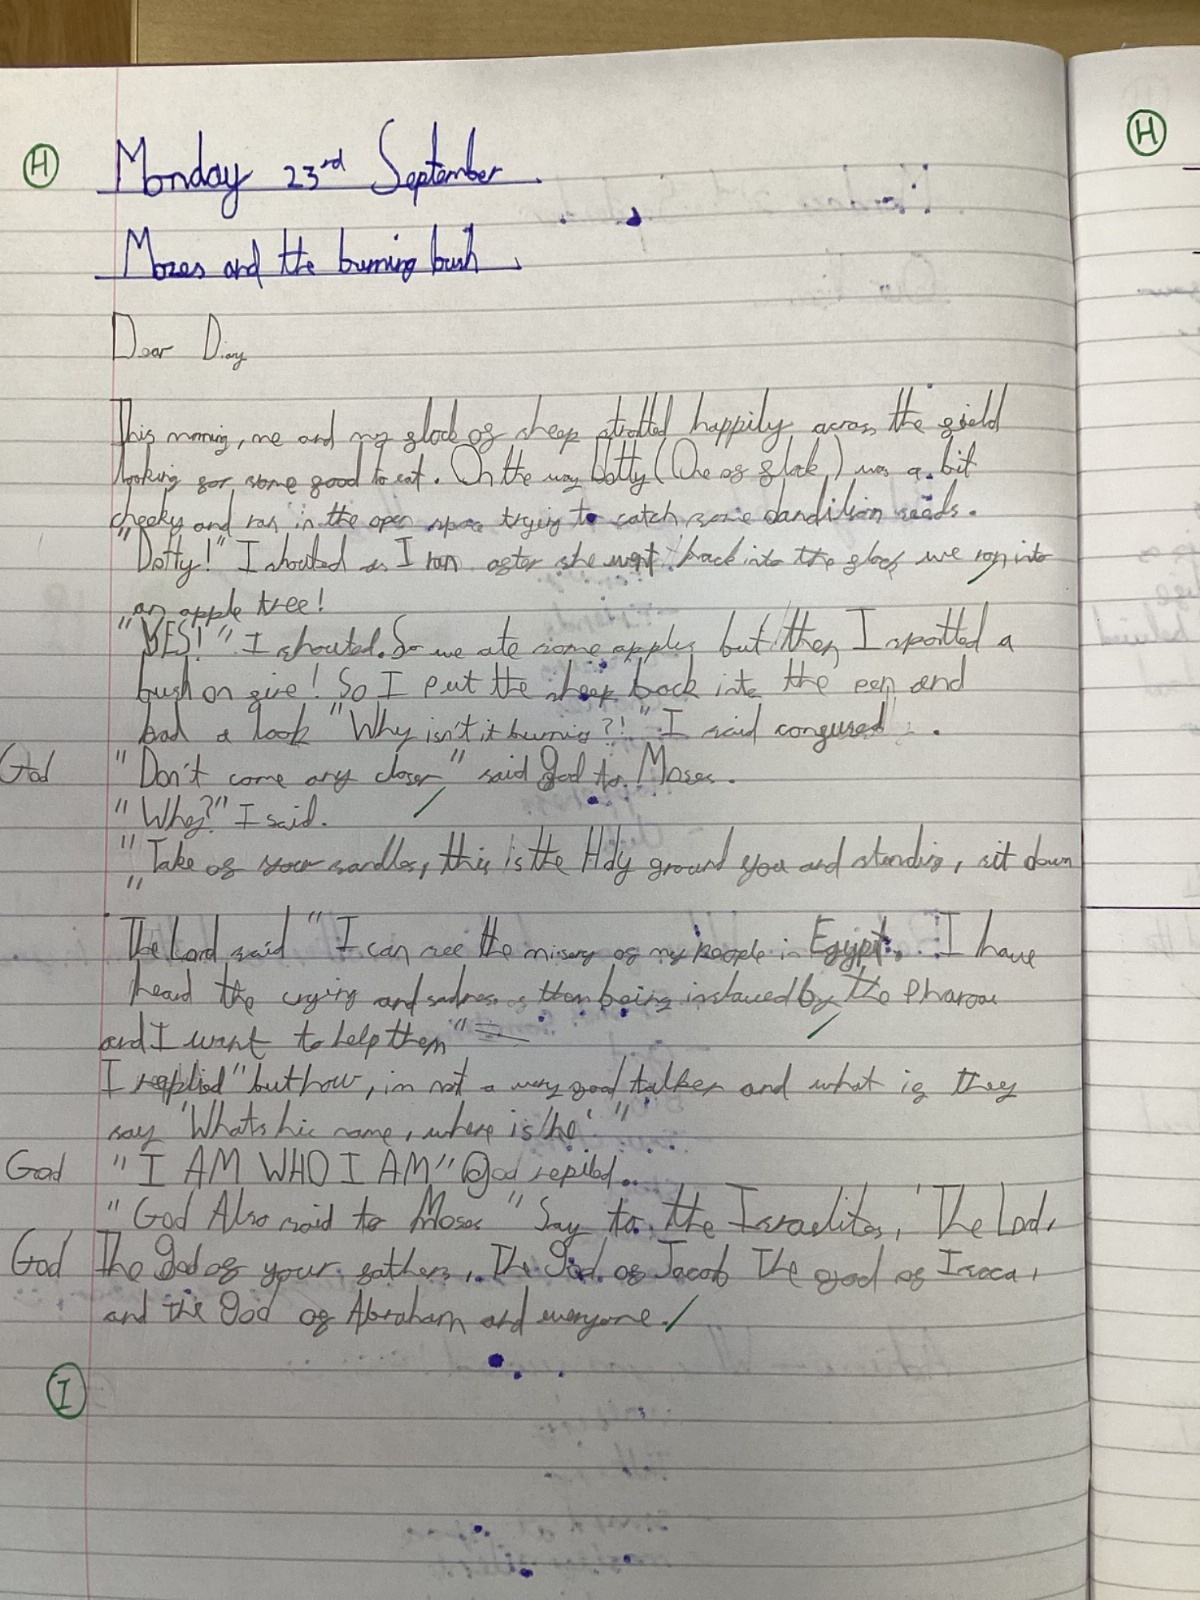 H
H
Monday 23rd September
Mozes and the burning bush
Dear Diary
This morning, me and my flock of sheep strotted happily across the field
looking for some good to eat. On the way Dotty (One of flock) was a bit
cheeky and ran in the open space trying to catch some dandilion seeds.
"Dotty!" I shouted as I ran after she went back into the flock we ran into
an apple tree!
"YES!" I shouted. So we ate some apples but then I spotted a
bush on fire! So I put the sheep back into the pen and
had a look "Why isn't it burning?!" I said confused .
God "Don't come any closer" said god to Moses.
"Why?" I said.
"Take of your sandles, this is the Holy ground you and standing, sit down
"
The Lord said "I can see the misery of my people in Egypt. I have
heard the crying and sadness of them being inslaved by the Pharoa
and I want to help them"
I replied "but how, im not a very good talker and what if they
say 'Whats his name, where is he'."
God "I AM WHO I AM" God repiled..
"God Also said to Moses "Say to the Israelites, 'The Lord,
God The god of your fathers, The god of Jacob The god of Isaca,
and the God of Abraham and everyone.
I